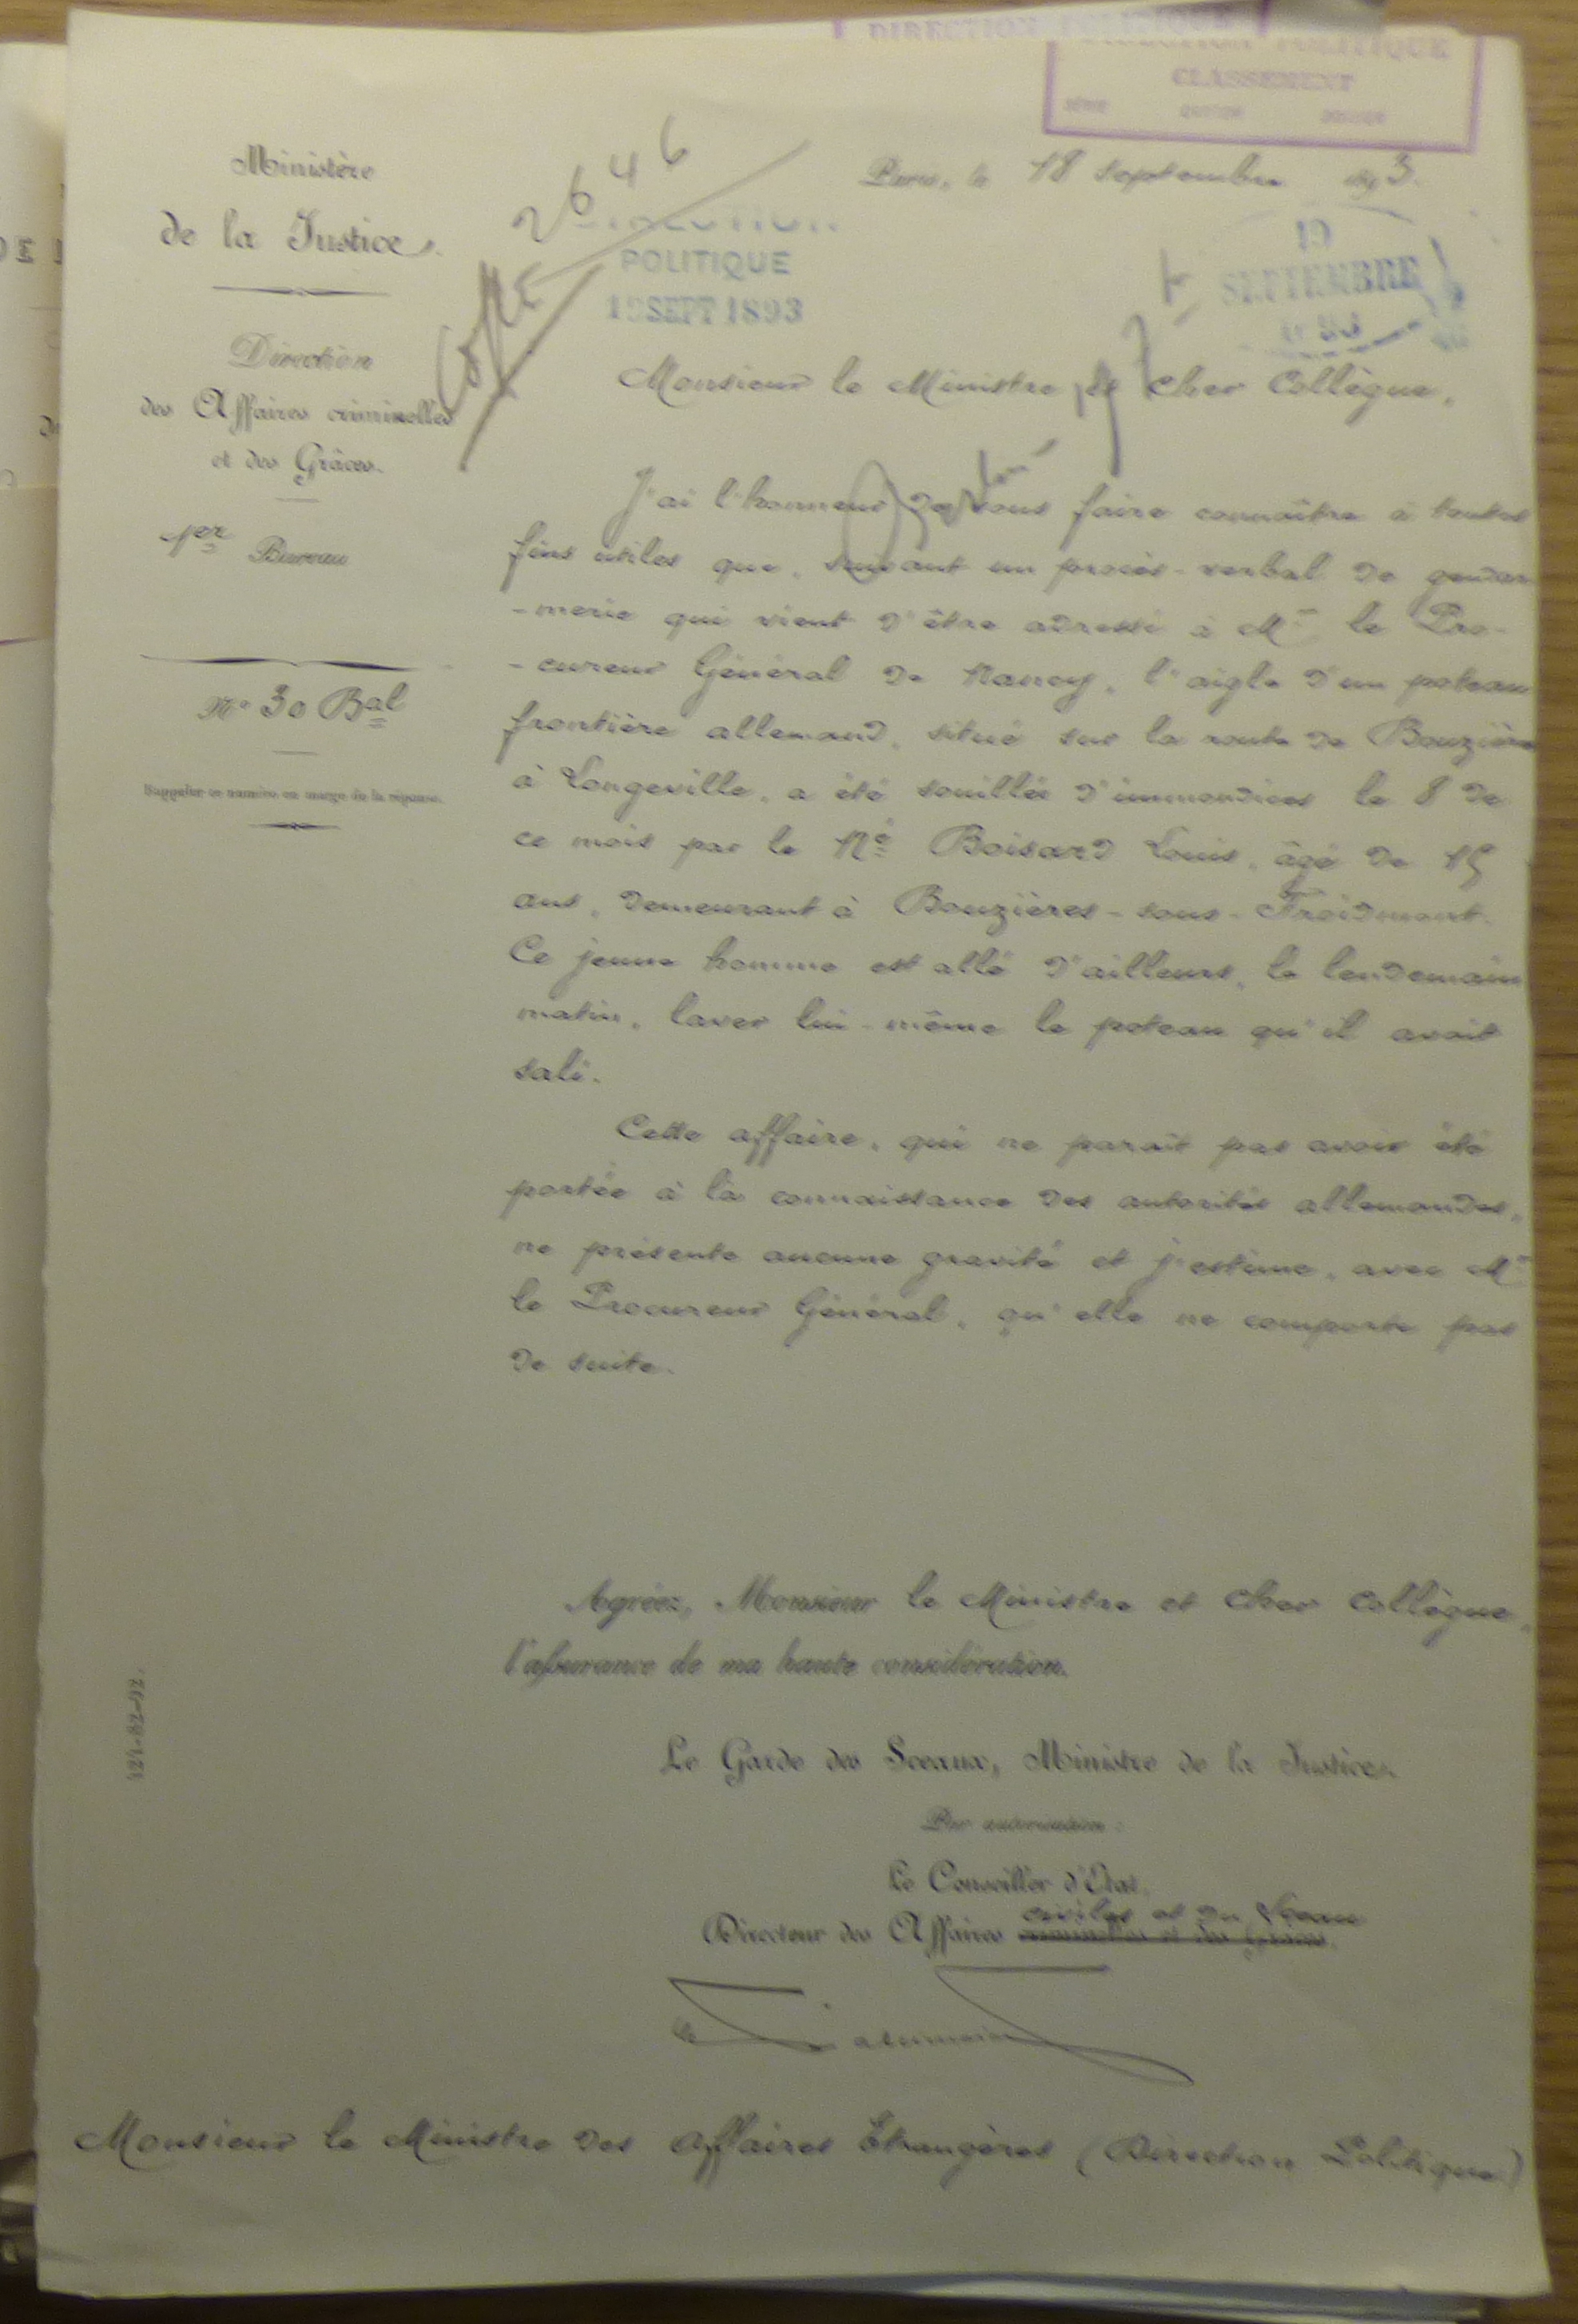 DIRECTION POLITIQUE
DIRECTION POLITIQUE
CLASSEMENT
SÉRIE CARTON DOSSIER
Ministère
de la Justice.
Direction
des Affaires criminelles
et des Grâces.
1er Bureau
N° 30 Bal
Rappeler ce numéro en marge de la réponse.
2646
DIRECTION
POLITIQUE
19 SEPT 1893
Paris, le 18 septembre 1893.
19
SEPTEMBRE
1893
Monsieur le Ministre et cher Collègue,
J'ai l'honneur de vous faire connaître à toutes
fins utiles que, suivant un procès-verbal de gendar
-merie qui vient d'être adressé à Mr le Pro-
-cureur Général de Nancy, l'aigle d'un poteau
frontière allemand, situé sur la route de Bouzières
à Longeville, a été souillée d'immondices le 8 de
ce mois par le Né Boisard Louis, âgé de 15
ans, demeurant à Bouzières-sous-Froidmont.
Ce jeune homme est allé d'ailleurs, le lendemain
matin, laver lui-même le poteau qu'il avait
sali.
Cette affaire, qui ne paraît pas avoir été
portée à la connaissance des autorités allemandes,
ne présente aucune gravité et j'estime, avec Mr
le Procureur Général, qu'elle ne comporte pas
de suite.
Agréez, Monsieur le Ministre et cher Collègue,
l'assurance de ma haute considération.
Le Garde des Sceaux, Ministre de la Justice.
Par autorisation :
Le Conseiller d'État,
civiles et du Sceau
Directeur des Affaires criminelles et des Grâces.
Monsieur le Ministre des Affaires Etrangères (Direction Politique)
121-82-92.